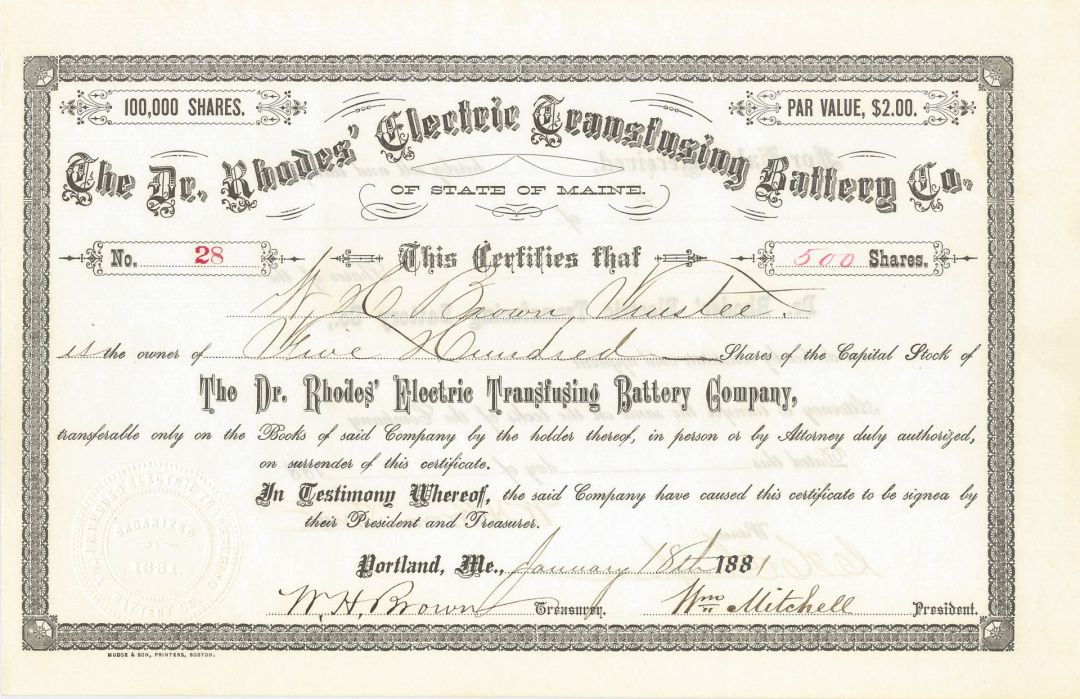 100,000 SHARES.
PAR VALUE, $2.00.
The Dr. Rhodes' Electric Transfusing Battery Co.
OF STATE OF MAINE.
No. 28
This Certifies that
500 Shares.
W. H. Brown, Trustee.
is the owner of Five Hundred Shares of the Capital Stock of
The Dr. Rhodes' Electric Transfusing Battery Company,
transferable only on the Books of said Company by the holder thereof, in person or by Attorney duly authorized,
on surrender of this certificate.
In Testimony Whereof, the said Company have caused this certificate to be signed by
their President and Treasurer.
ORGANIZED
1881.
BATTERY CO.
Portland, Me., January 18th 1881
W. H. Brown Treasurer.
Wm Mitchell President.
MUDGE & SON, PRINTERS, BOSTON.